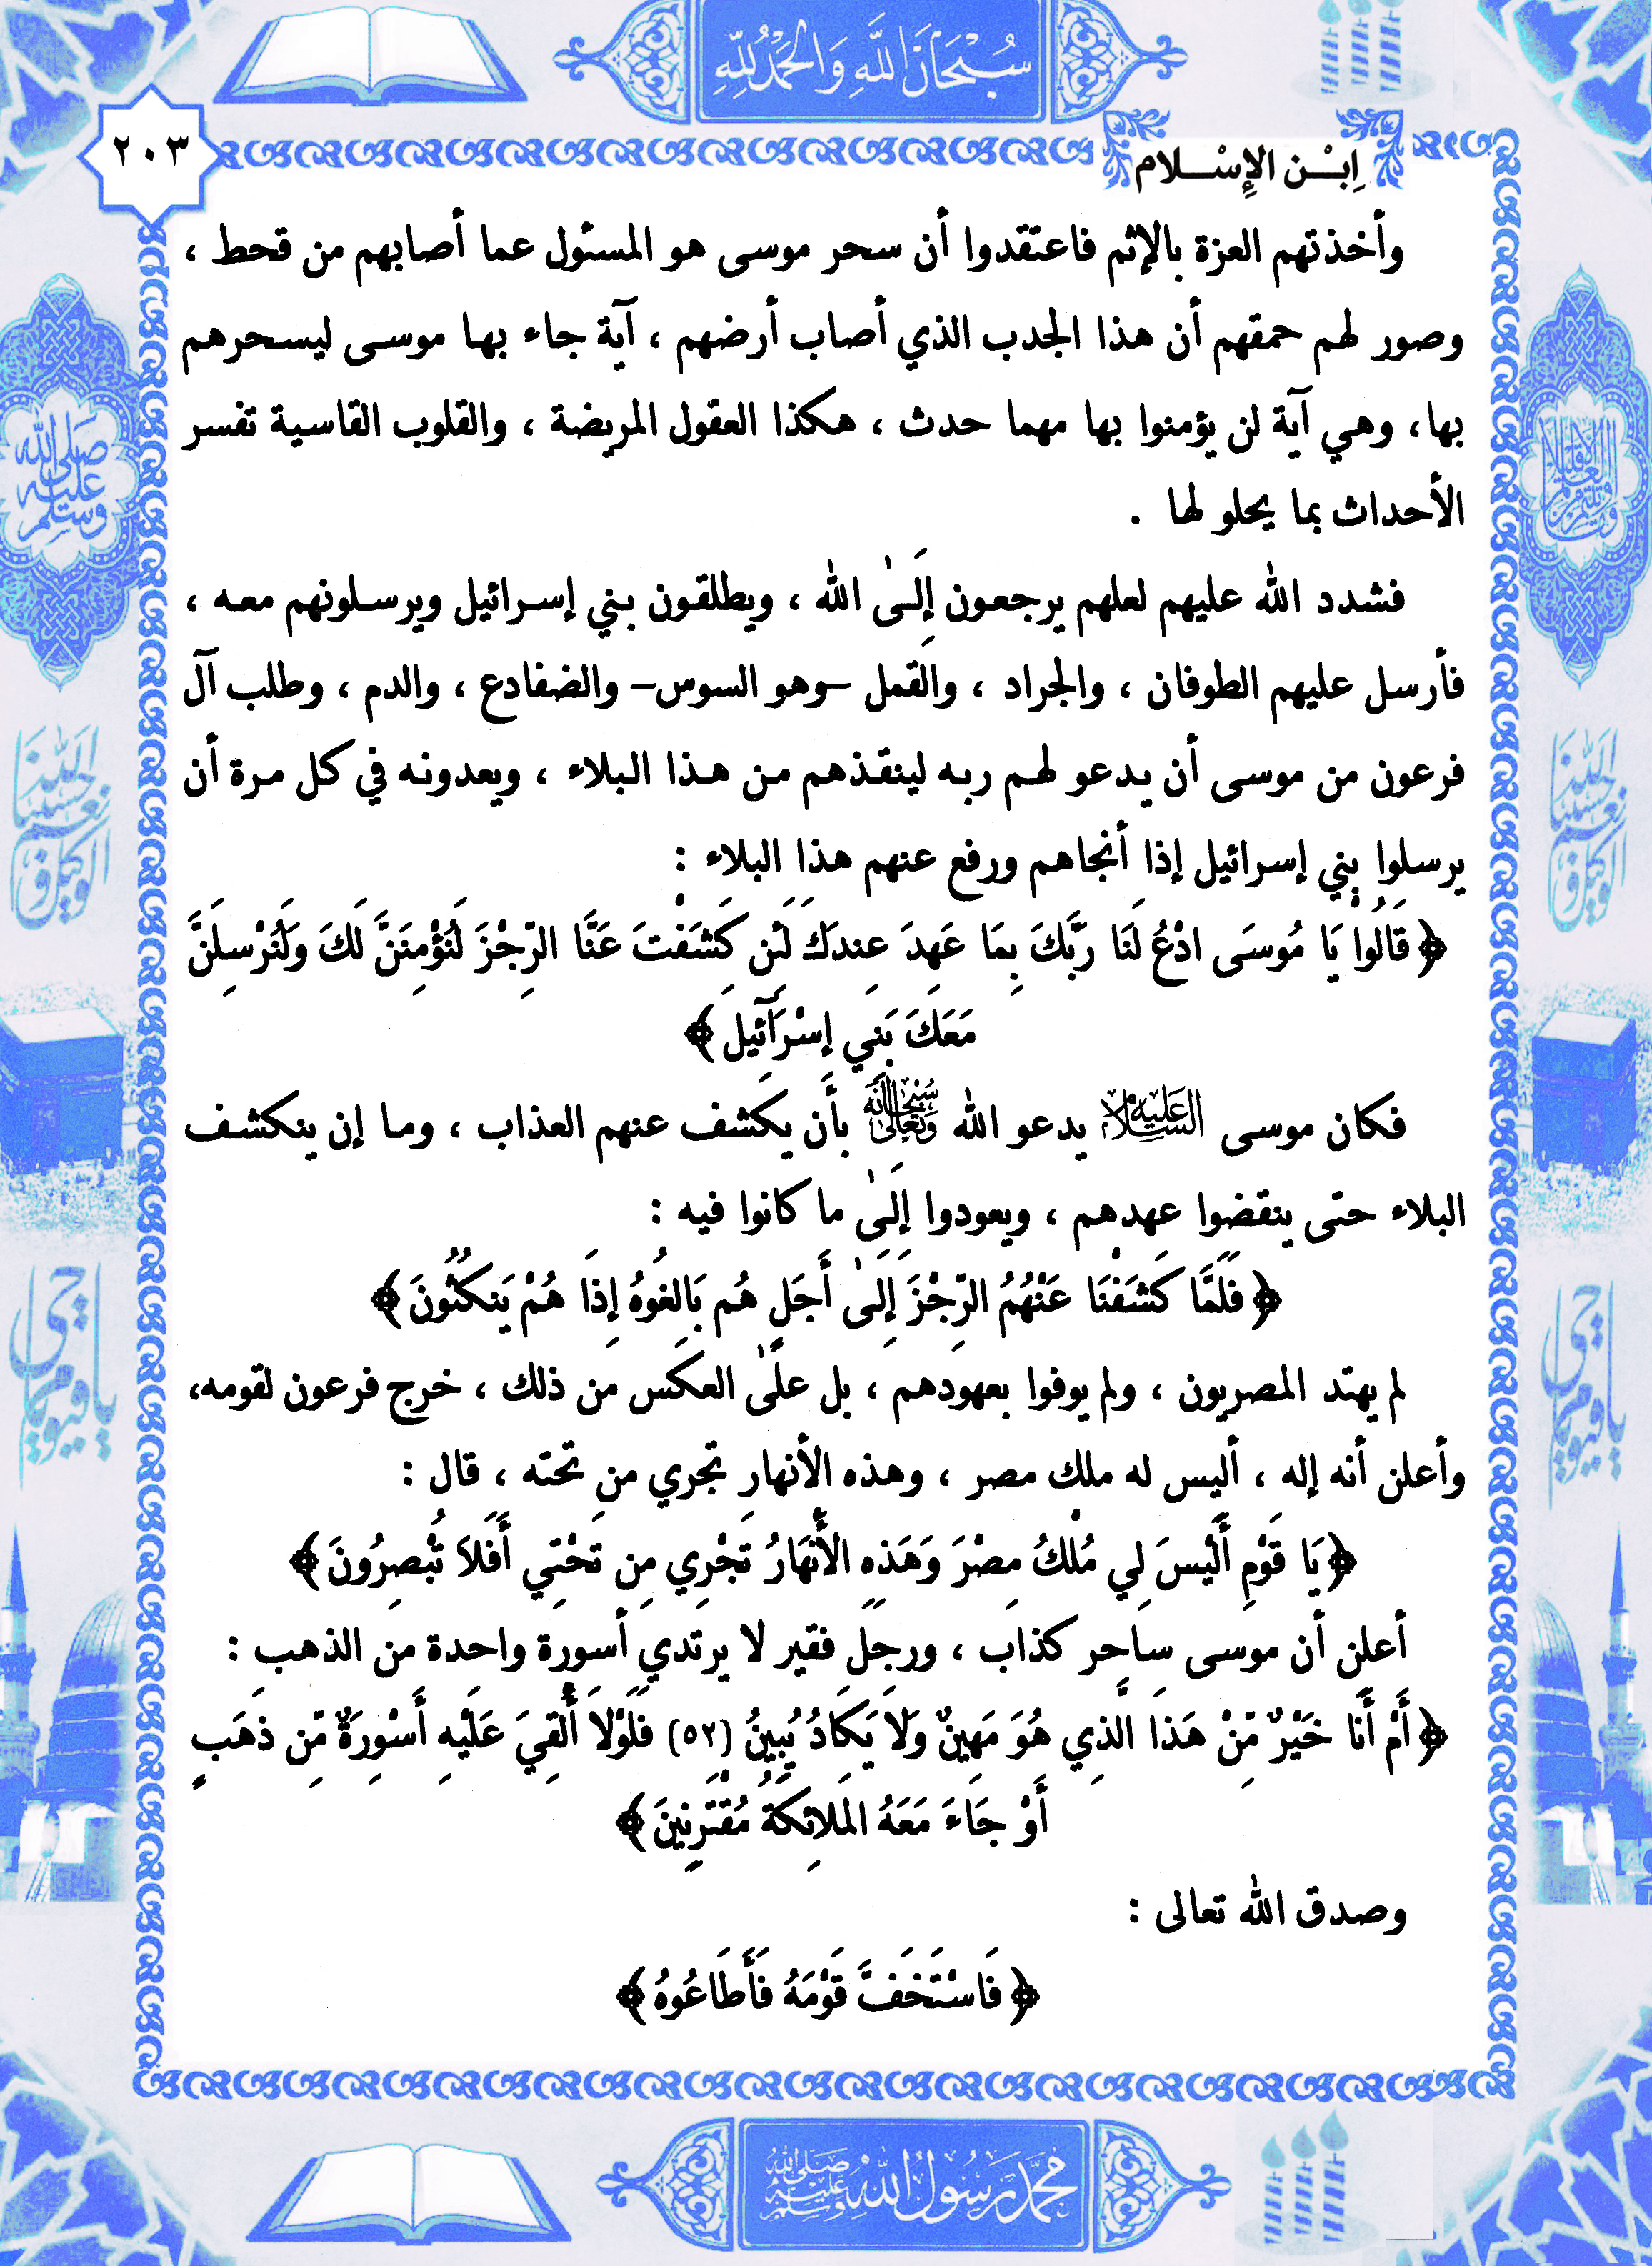 سُبْحَانَ اللَّهِ وَالْحَمْدُ لِلَّهِ
٢٠٣
اِبْـن الإِسْـلام
وأخذتهم العزة بالإثم فاعتقدوا أن سحر موسى هو المسئول عما أصابهم من قحط ،
وصور لهم حمقهم أن هذا الجدب الذي أصاب أرضهم ، آية جاء بها موسى ليسحرهم
بها، وهي آية لن يؤمنوا بها مهما حدث ، هكذا العقول المريضة ، والقلوب القاسية تفسر
الأحداث بما يحلو لها .
فشدد الله عليهم لعلهم يرجعون إِلَىٰ الله ، ويطلقون بني إسرائيل ويرسلونهم معه ،
فأرسل عليهم الطوفان ، والجراد ، والقمل –وهو السوس– والضفادع ، والدم ، وطلب آل
فرعون من موسى أن يدعو لهم ربه لينقذهم من هذا البلاء ، ويعدونه في كل مرة أن
يرسلوا بني إسرائيل إذا أنجاهم ورفع عنهم هذا البلاء :
﴿قَالُوْا يَا مُوسَى ادْعُ لَنَا رَبَّكَ بِمَا عَهِدَ عِندَكَ لَئِن كَشَفْتَ عَنَّا الرِّجْزَ لَنُؤْمِنَنَّ لَكَ وَلَنُرْسِلَنَّ
مَعَكَ بَنِي إِسْرَآئِيلَ﴾
فكان موسى عليه السلام يدعو الله سبحانه وتعالى بأن يكشف عنهم العذاب ، وما إن ينكشف
البلاء حتى ينقضوا عهدهم ، ويعودوا إِلَىٰ ما كانوا فيه :
﴿فَلَمَّا كَشَفْنَا عَنْهُمُ الرِّجْزَ إِلَىٰ أَجَلٍ هُم بَالِغُوهُ إِذَا هُمْ يَنكُثُونَ﴾
لم يهتد المصريون ، ولم يوفوا بعهودهم ، بل عَلَىٰ العكس من ذلك ، خرج فرعون لقومه،
وأعلن أنه إله ، أليس له ملك مصر ، وهذه الأنهار تجري من تحته ، قال :
﴿يَا قَوْمِ أَلَيْسَ لِي مُلْكُ مِصْرَ وَهَذِهِ الأَنْهَارُ تَجْرِي مِن تَحْتِي أَفَلاَ تُبْصِرُونَ﴾
أعلن أن موسى ساحر كذاب ، ورجل فقير لا يرتدي أسورة واحدة من الذهب :
﴿أَمْ أَنَا خَيْرٌ مِّنْ هَذَا الَّذِي هُوَ مَهِينٌ وَلاَ يَكَادُ يُبِينُ (٥٢) فَلَوْلاَ أُلْقِيَ عَلَيْهِ أَسْوِرَةٌ مِّن ذَهَبٍ
أَوْ جَاءَ مَعَهُ المَلائِكَةُ مُقْتَرِنِينَ﴾
وصدق الله تعالى :
﴿فَاسْتَخَفَّ قَوْمَهُ فَأَطَاعُوهُ﴾
محمد رسول الله صلى الله عليه وسلم
صلى الله عليه وسلم